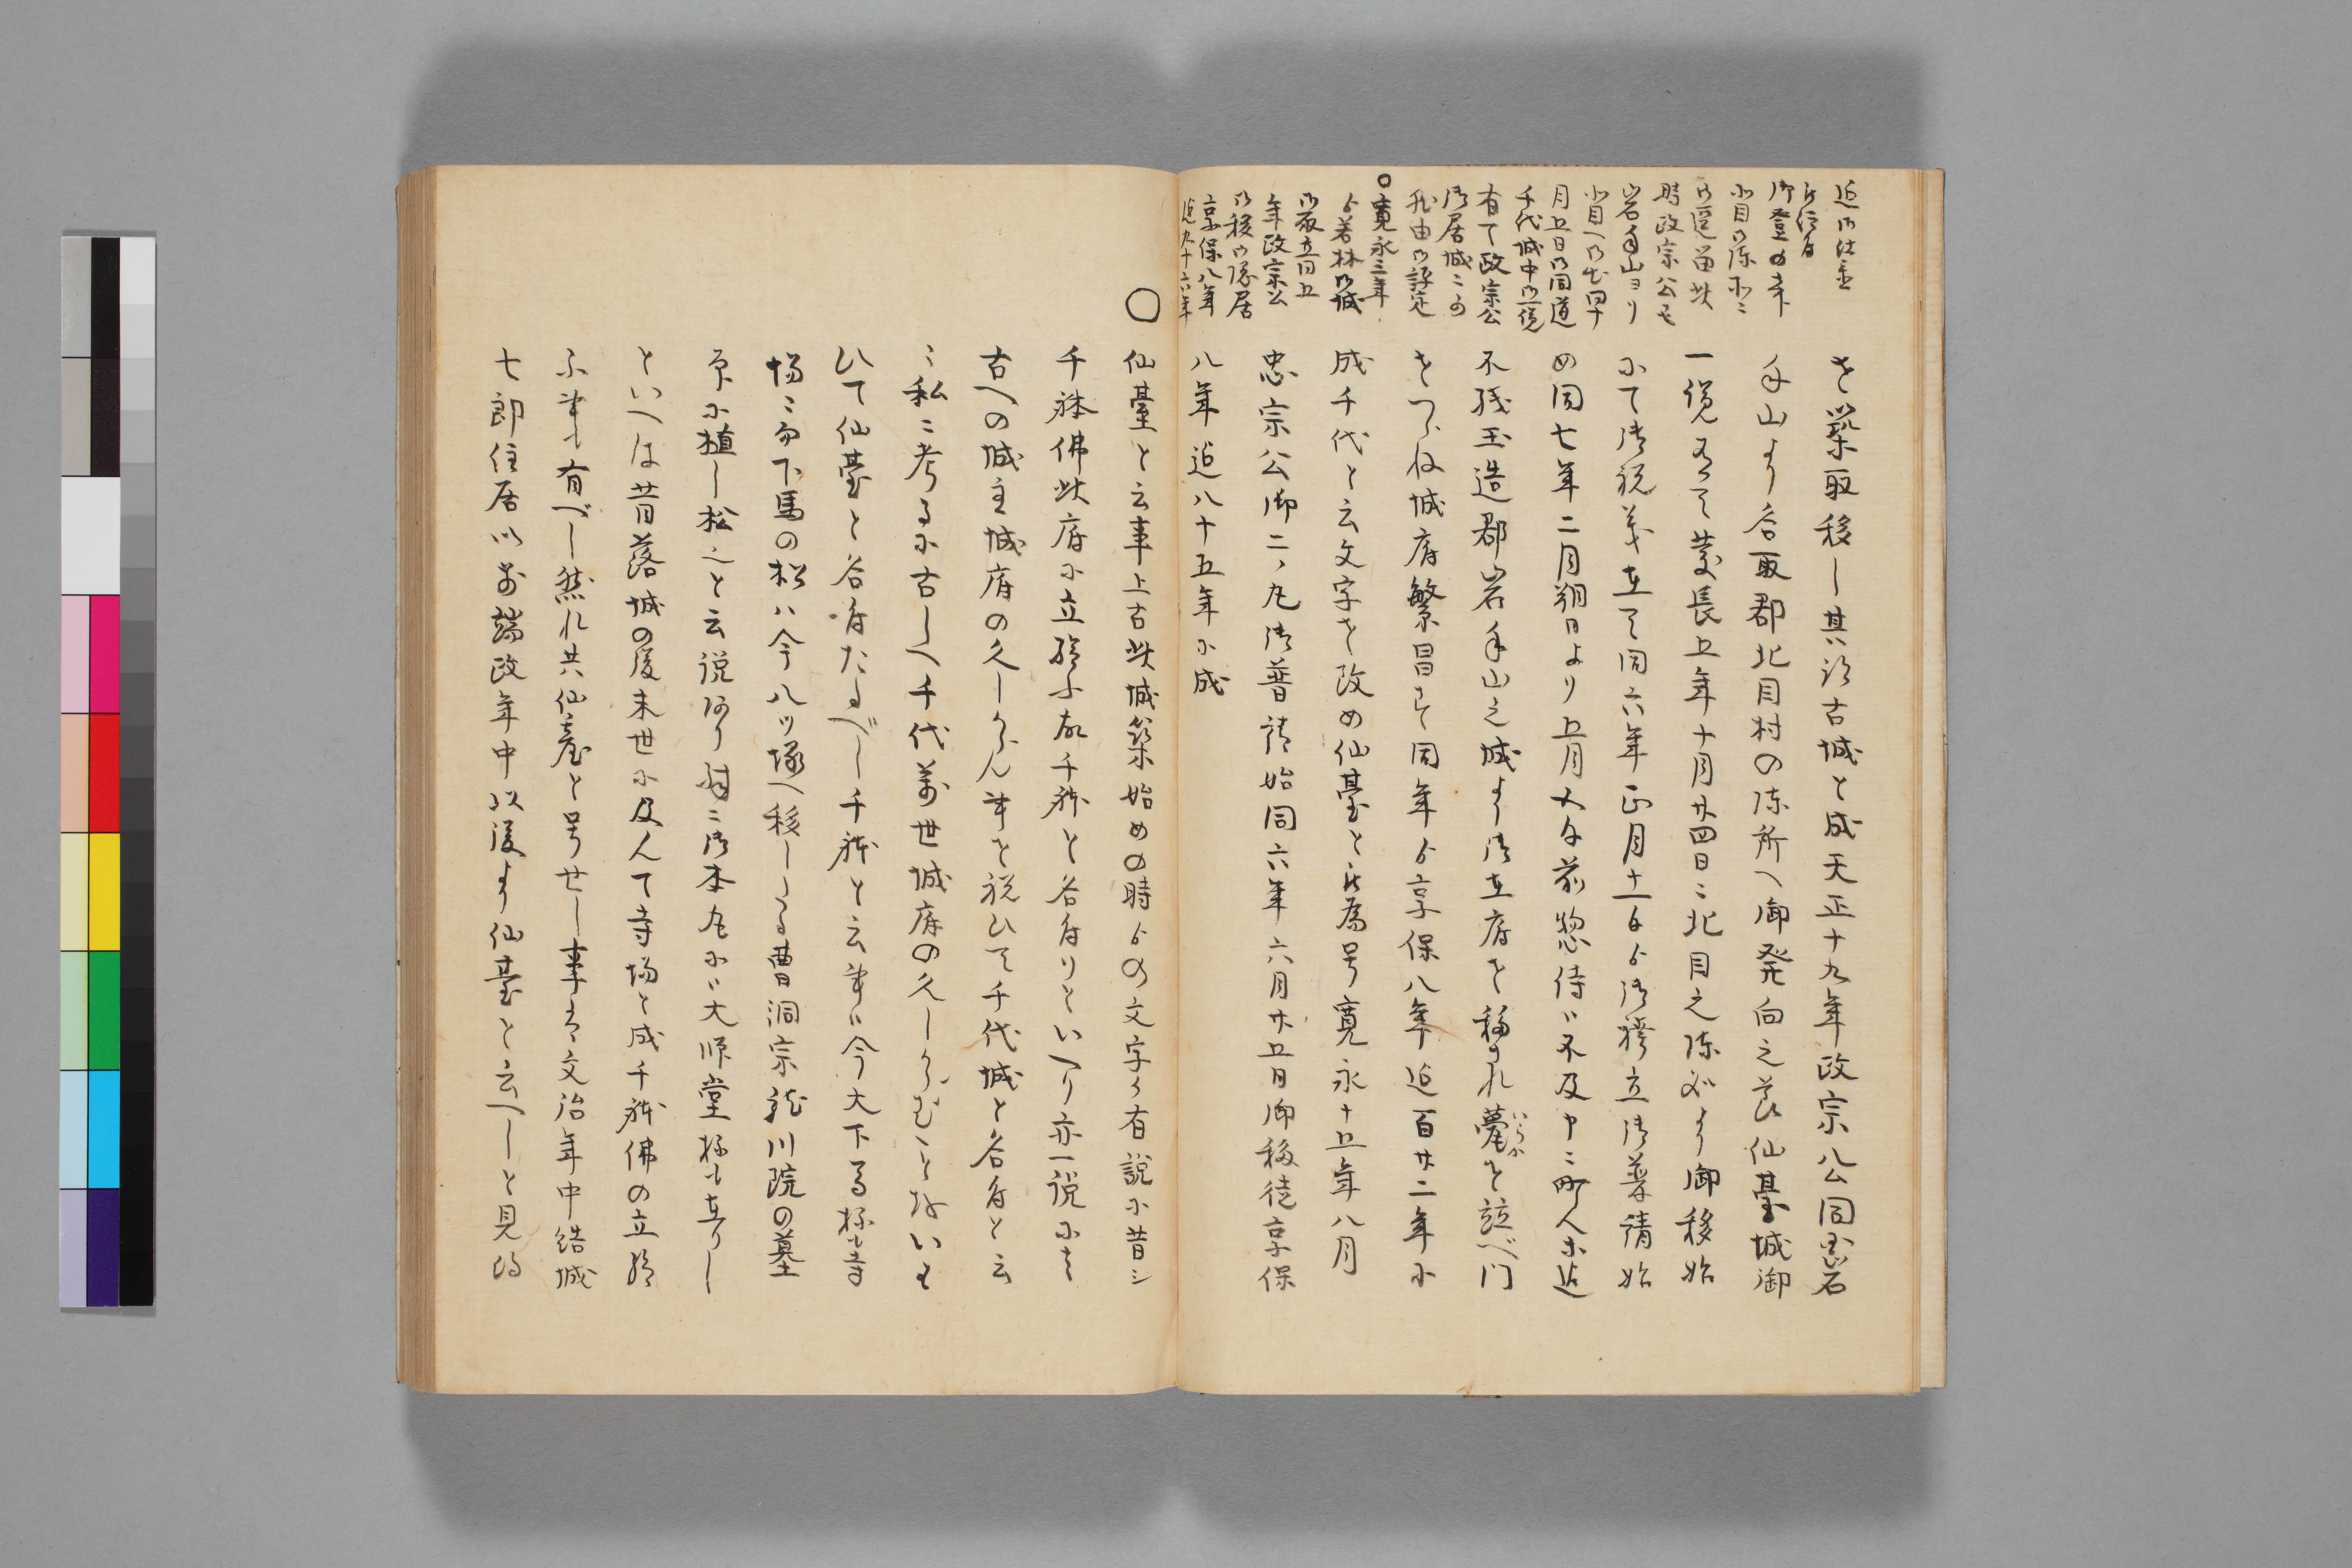 近御仕置
御登の幸
北目御陳所ニ
御逗留此
時政宗公も
岩手山ヨリ
北目へ御出
月五日御同道
千代城中御一覧
有て政宗公
御居城ニ可
成由御評定
○寛永三年
ゟ若林御城
御取立同五
年政宗公
御移御隠居
享保八年
迠九十六年
を築取移し其後古城と成天正十九年政宗公同国岩
手山より名取郡北目村の陳所へ御発向之義仙臺城御
一覧有て慶長五年十月廿四日ニ北目之陳所より御移始
にて御祝義在て同六年正月十一日ゟ御 立御普請始
め同七年二月朔日より五月 日前惣侍ハ不及申ニ町人等迠
不残玉造郡岩手山之城より御在府を移され甍を並べ門
をつらね城府繁昌す同年ゟ享保八年迠百廿二年に
成千代と云文字を改め仙臺と被為号寛永十五年八月
忠宗公御二ノ丸御普請始同六年六月廿五日御移徒享保
八年迠八十五年に成
○仙臺と云事上古此城築始めの時ゟの文字々有説に昔シ
千躰佛此府に立給ふ故千躰と名付りといへり亦一説にハ
古への城主城府の久しからん事を祝ひて千代城と名付と云
ニ私ニ考るに古しへ千代萬世城府の久しからむことをいわ
ひて仙臺と名付たるべし千躰と云事ハ今大下馬 寺
場ニ而下馬の松ハ今八ツ塚へ移したる曹洞宗龍川院の墓
所に植し松之と云説あり 御本丸にハ大師堂 も有りし
といへは昔落城の後末世に及んて寺場と成千躰佛の立給
ふ事も有べし然れ共仙臺と号せし事は文治年中結城
七郎住居以前端政年中以後より仙臺と云へしと見得